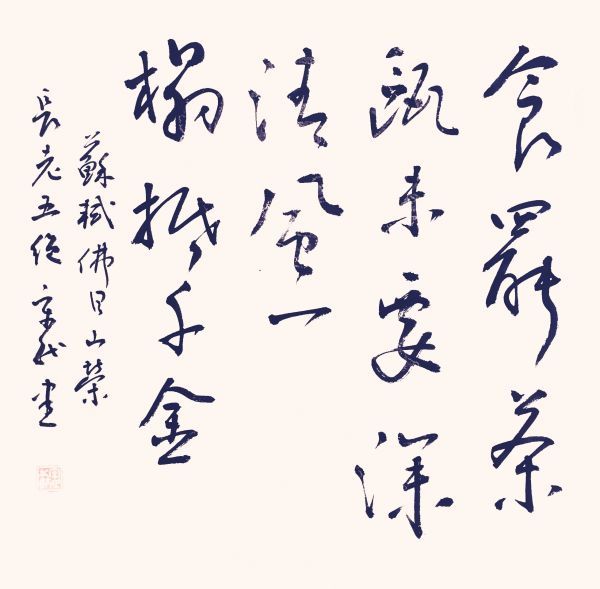 食罷茶
甌未要深
清風一
榻抵千金
蘇軾佛日山榮
長老五絕書